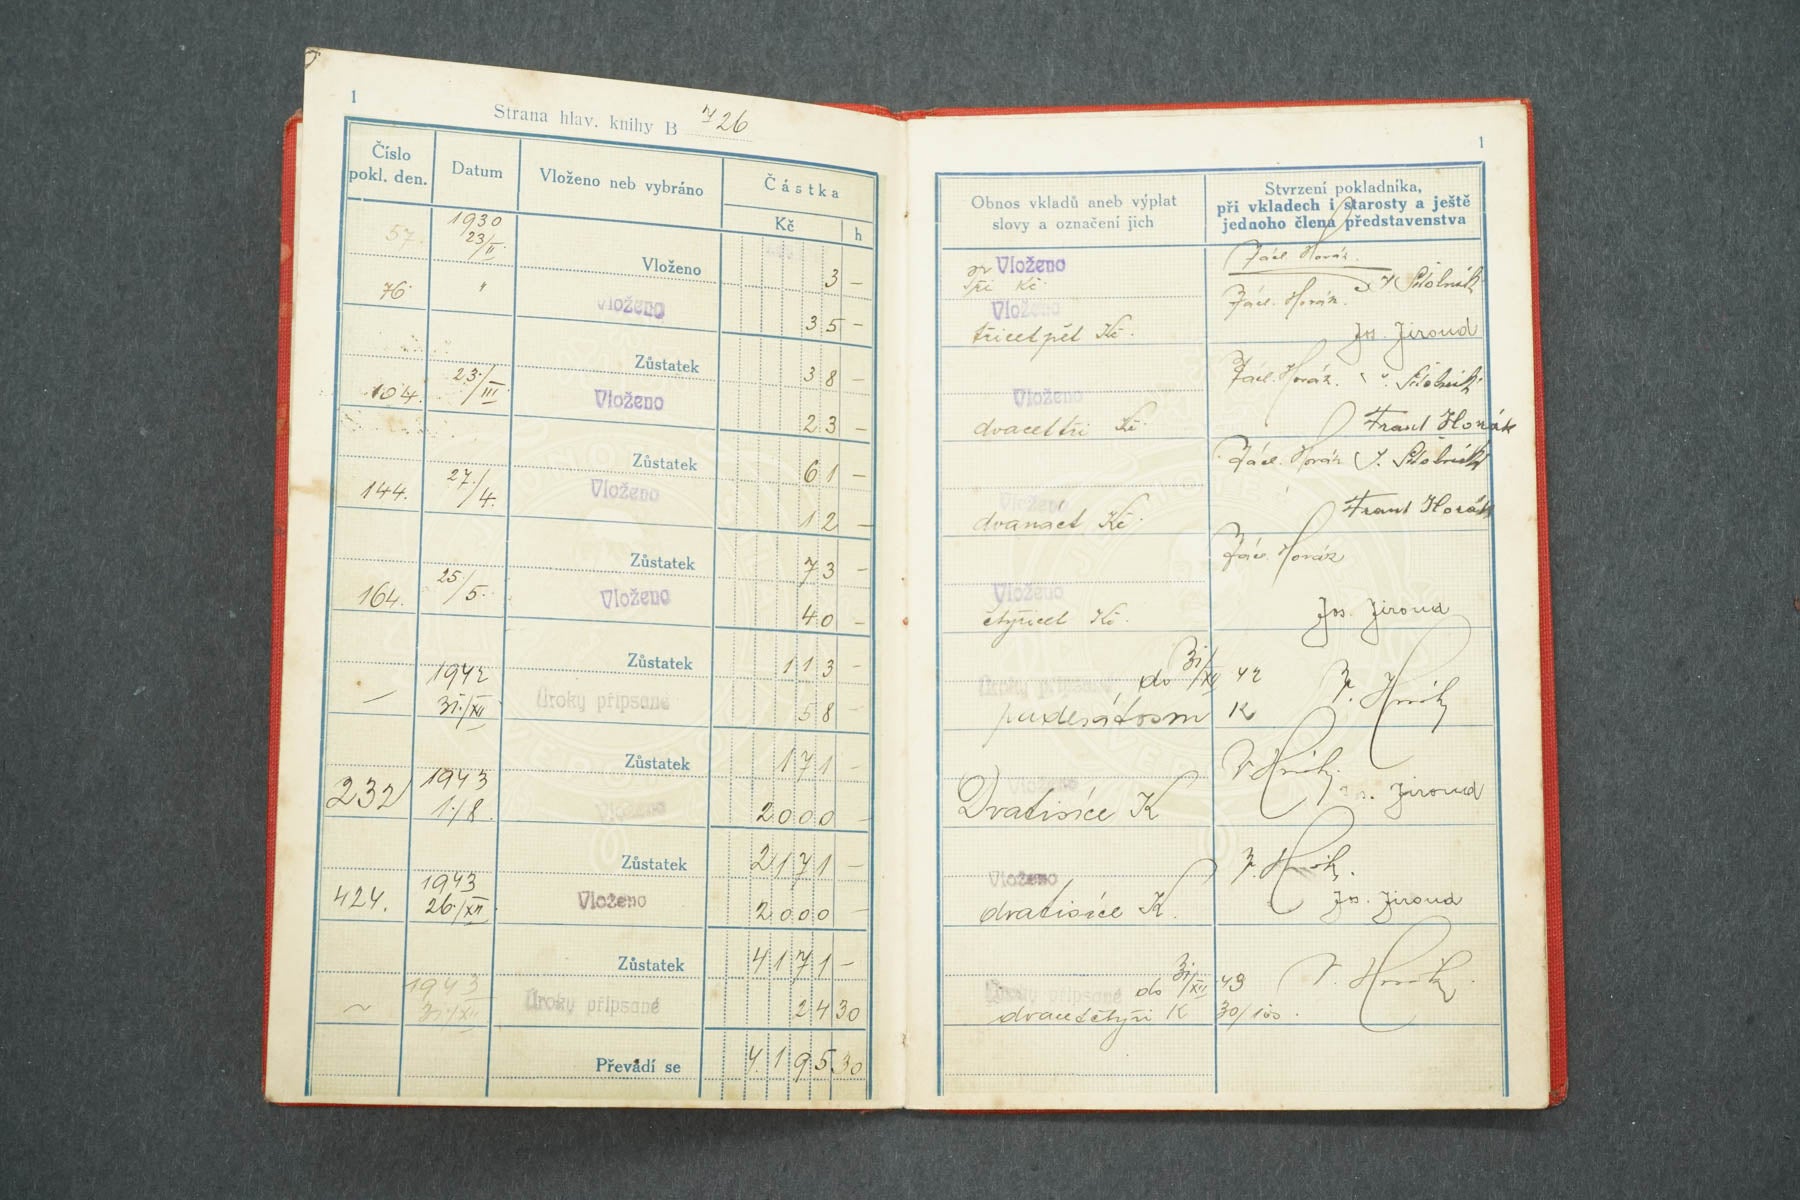 1
Strana hlav. knihy B 726
Číslo pokl. den.
Datum
Vloženo neb vybráno
Částka
Kč
h
57. 1930 23/II. Vloženo 3 —
76. " Vloženo 35 —
Zůstatek 38 —
104. 23./III. Vloženo 23 —
Zůstatek 61 —
144. 27./4. Vloženo 12 —
Zůstatek 73 —
164. 25/5. Vloženo 40 —
Zůstatek 113 —
— 1942 31./XII Úroky připsané 58 —
Zůstatek 171 —
232 1943 1./8. Vloženo 2000 —
Zůstatek 2171 —
424. 1943 26./XII. Vloženo 2000 —
Zůstatek 4171 —
~ 1943 31./XII Úroky připsané 24 30
Převádí se 4.195 30
1
Obnos vkladů aneb výplat
slovy a označení jich
Stvrzení pokladníka,
při vkladech i starosty a ještě
jednoho člena představenstva
Vloženo
tři Kč. Horák.
Vloženo Horák.
třicetpět Kč. Jos. Jiroud
Horák.
Vloženo
dvacettři Kč. Frant Horák
Horák
Vloženo
dvanáct Kč. Frant Horák
Horák
Vloženo
čtyřicet Kč. Jos. Jiroud
Úroky připsané do 31/XII 42
padesátosm K
Vloženo
Dvatisíce K Jos. Jiroud
Vloženo
dvatisíce K. Jos. Jiroud
Úroky připsané do 31/XII 43
dvacetčtyři K 30/100.